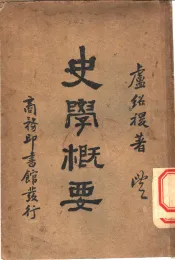 盧紹稷著
史學概要
商務印書館發行